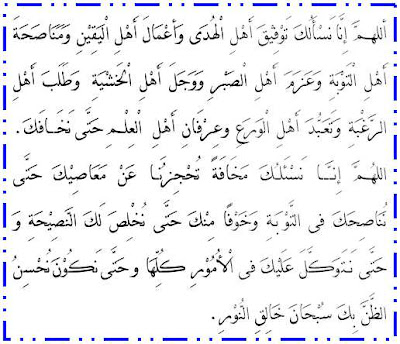 أللهمَّ إنَّا نَسْأَلُكَ تَوْفِيْقَ أَهْلِ الْهُدَى وَأَعْمَالَ أَهْلِ الْيَقِيْنِ وَمُنَاصَحَةَ
أَهْلِ التَّوْبَةِ وَعَزْمَ أَهْلِ الصَّبْرِ وَوَجَلَ أَهْلِ الْخَشْيَةِ وَطَلَبَ أَهْلِ
الرَّغْبَةِ وَتَعَبُّدَ أَهْلِ الْوَرَعِ وَعِرْفَانِ أَهْلِ الْعِلْمِ حَتَّى نَخَافَكَ .
اللهُمَّ إِنَّا نَسْئَلُكَ مَخَافَةً تُحْجِزُنَا عَنْ مَعَاصِيْكَ حَتَّى
نُنَاصِحَكَ فِى التَّوْبَةِ وَخَوْفًا مِنْكَ حَتَّى نُخْلِصَ لَكَ النَّصِيْحَةِ وَ
حَتَّى نَتَوَكَّلَ عَلَيْكَ فِى الْأُمُوْرِ كُلِّهَا وحَتَّى نَكُوْنَ نُحْسِنُ
الظَّنَّ بِكَ سُبْحَانَ خَالِقِ النُّوْرِ .